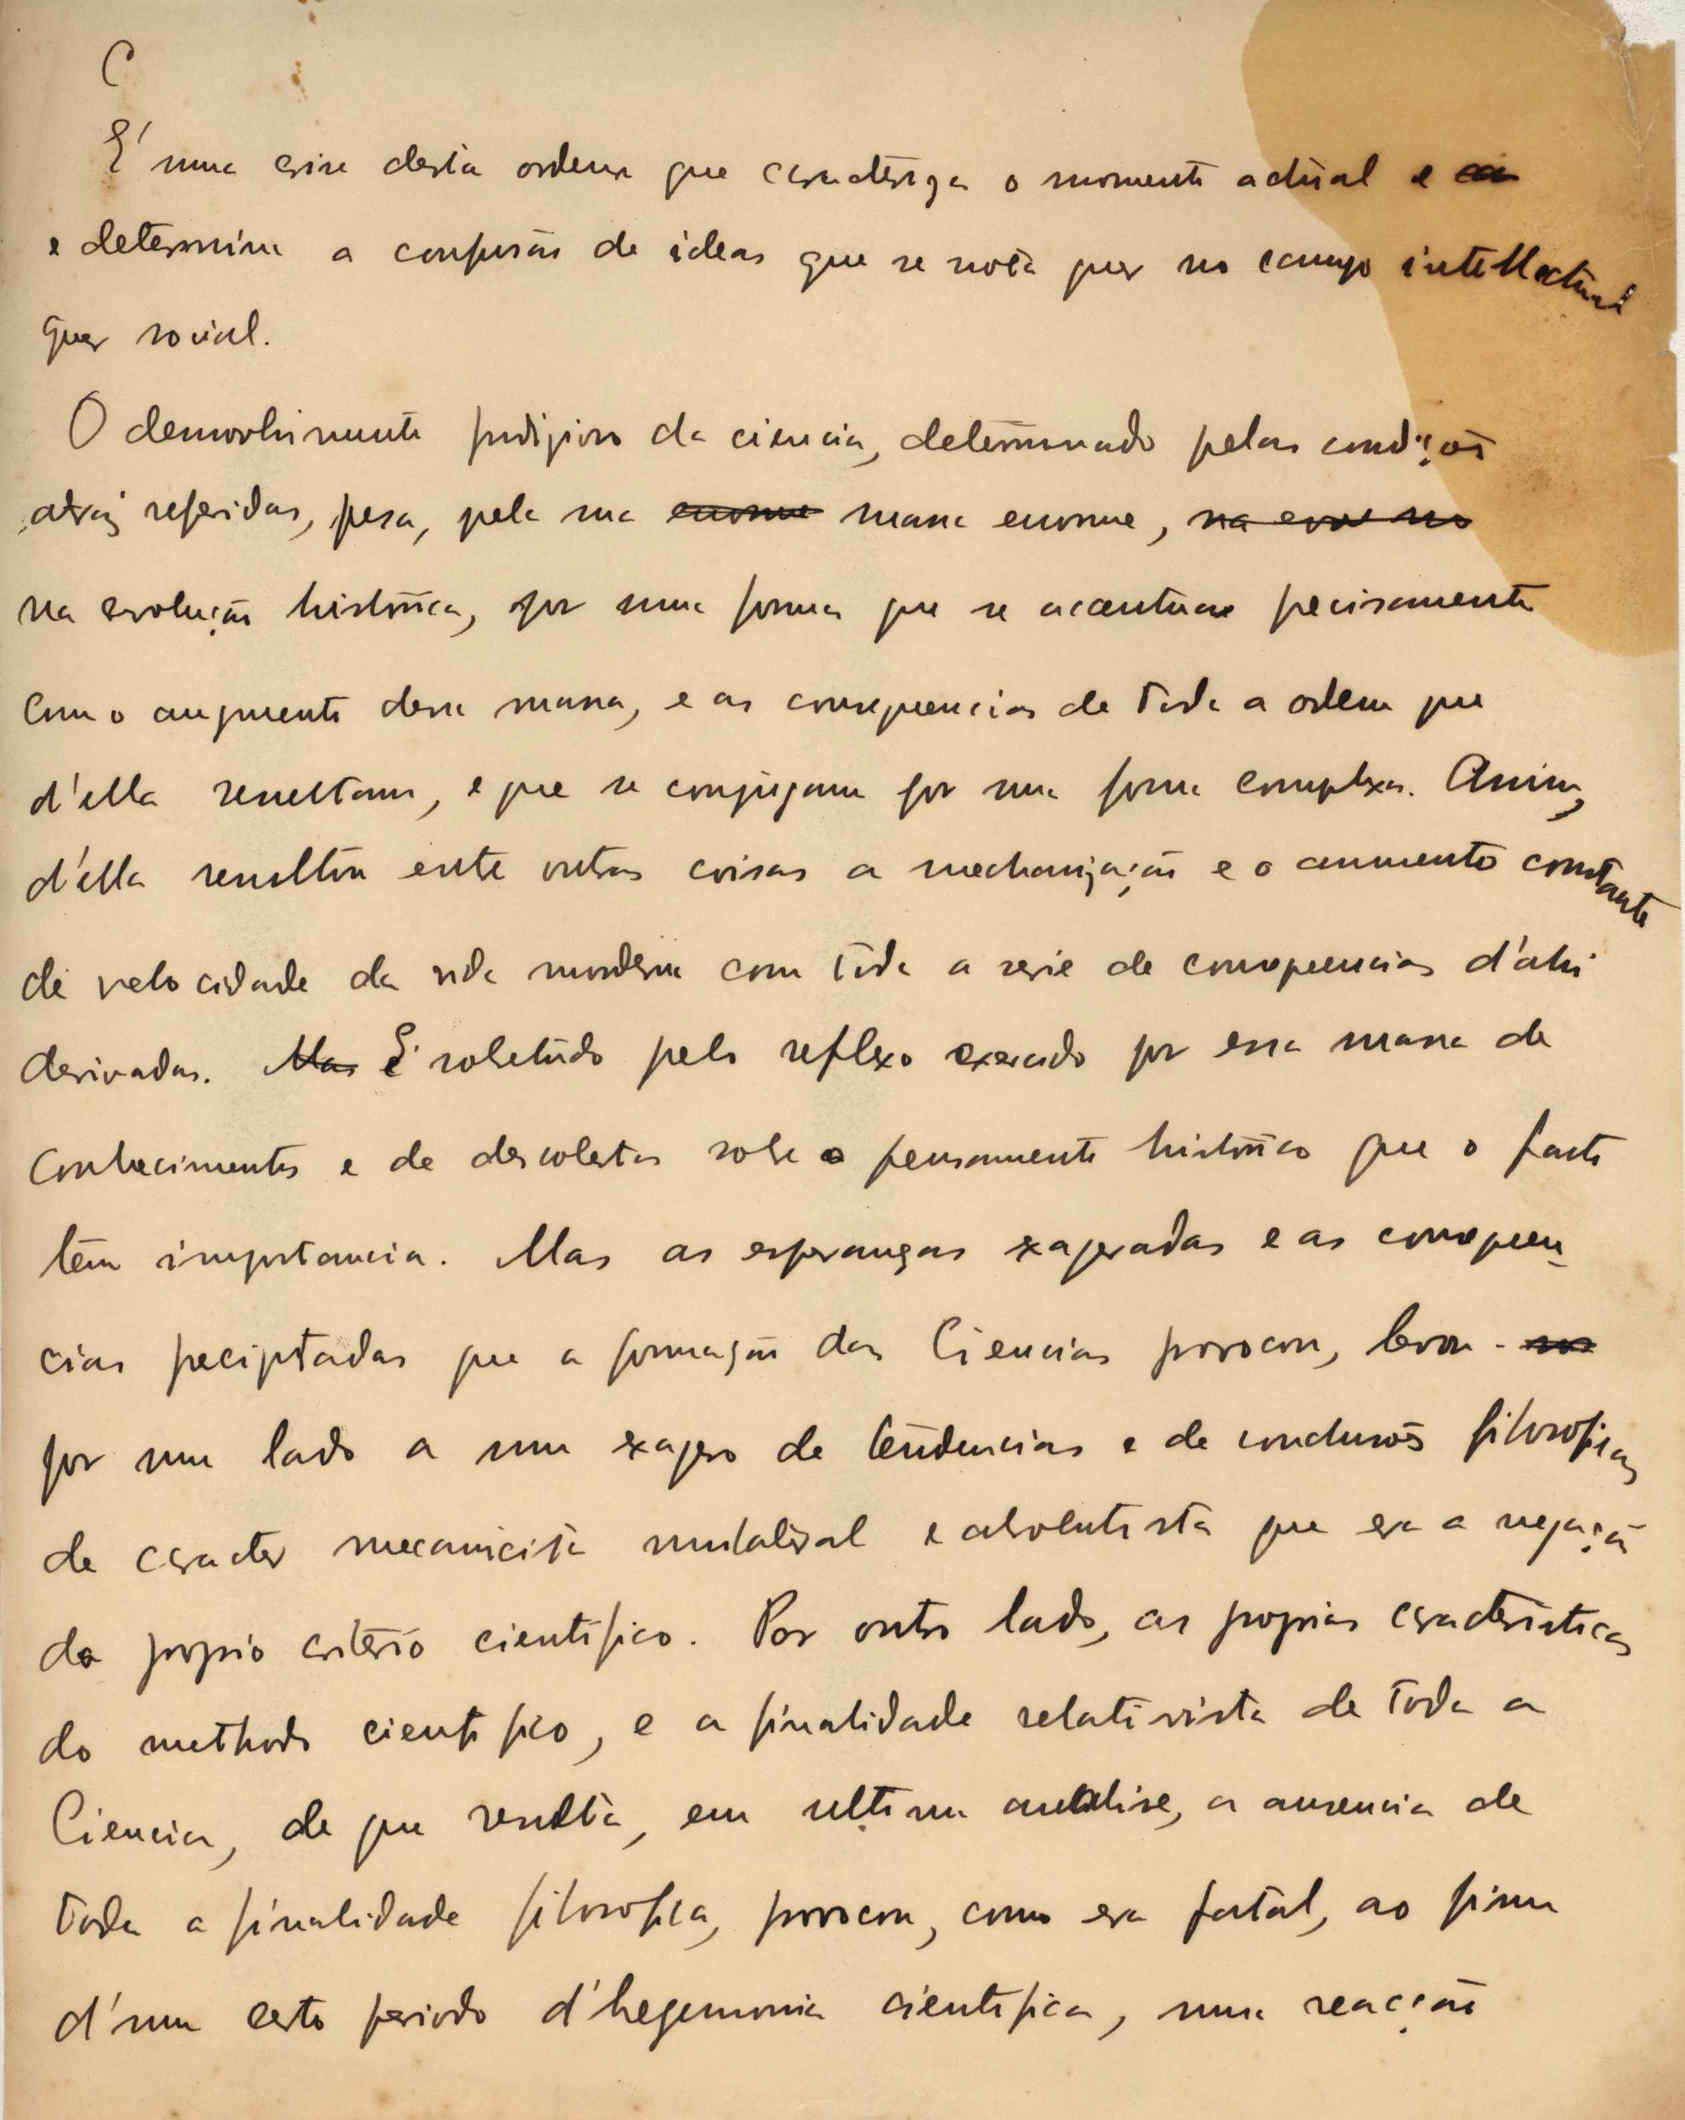 C
É uma crise desta ordem que caracteriza o momento actual e
e determina a confusão de ideas que se nota quer no campo intellectual
quer social.
O desenvolvimento prodigioso da ciencia, determinado pelas condições
atraz referidas, pesa, pela sua enorme massa enorme, na evol no
na evolução histórica, por uma forma que se accentua precisamente
com o augmento dessa massa, e as consequencias de toda a ordem que
d'ella resultam, e que se conjugam por uma forma complexa. Assim,
d'ella resultou entre outras coisas a mechanização e o aumento constante
de velocidade da vida moderna com toda a serie de consequencias d'ahi
derivadas. Mas É sobretudo pelo reflexo exercido por essa massa de
conhecimentos e de descobertas sobre o pensamento histórico que o facto
tem importancia. Mas as esperanças exageradas e as consequen-
cias precipitadas que a formação das Ciencias provocou, levou-nos
por um lado a um exagero de tendencias e de conclusões filosoficas
de caracter mecanicista unilateral e absolutista que era a negação
do proprio critério cientifico. Por outro lado, as proprias caracteristicas
do methodo cientifico, e a finalidade relativista de toda a
Ciencia, de que resulta, em ultima analise, a ausencia de
toda a finalidade filosofica, provocou, como era fatal, ao fim
d'um certo periodo d'hegemonia cientifica, uma reacção